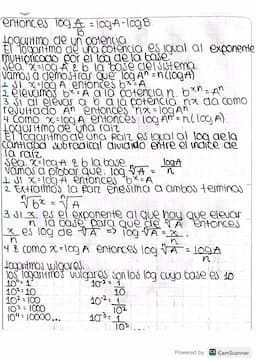 entonces log A/B = logA - logB
Logaritmo de un potencia
El logaritmo de una potencia es igual al exponente
multiplicado por el log de la base.
Sea x=logA & b la base del sistema
vamos a demostrar que logAⁿ = n(logA)
1 Si x=logA entonces bˣ=A
2 elevamos bˣ=A a la potencia n. bˣⁿ=Aⁿ
3 Si al elevar a b a la potencia nx da como
resultado Aⁿ entonces nx=logAⁿ
4 Como x=logA entonces logAⁿ=n(logA).
Logaritmo de una raíz
El logaritmo de una raiz es igual al log de la
cantidad subradical dividido entre el indice de
la raíz.
Sea x=logA & b la base
vamos a probar que, log ⁿ√A = logA/n
1 Si x=logA entonces bˣ=A
2 Extraemos la raíz enesima a ambos terminos
ⁿ√bˣ = ⁿ√A
3 si x/n es el exponente al que hay que elevar
la base para que de ⁿ√A entonces
x/n es log de ⁿ√A ⇒ log ⁿ√A = x/n.
4 & como x=logA entonces log ⁿ√A = logA/n
Logaritmos vulgares
los logaritmos vulgares son los log cuya base es 10
10⁰=1 10⁻¹=1/10
10¹=10
10²=100 10⁻²=1/10²
10³=1000
10⁴=10000... 10⁻³=1/10³...
Powered by CS CamScanner